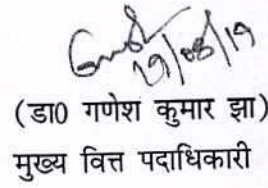 19/08/19
(डा0 गणेश कुमार झा)
मुख्य वित्त पदाधिकारी